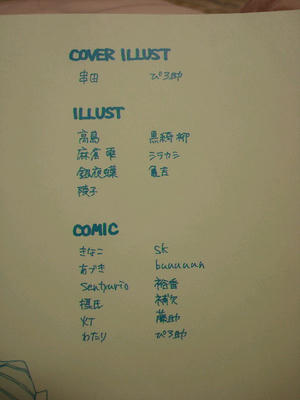 COVER ILLUST
串田 ぴろ助
ILLUST
高島 黒綺柳
麻倉雫 シラカシ
銀夜蝶 亀吉
陵子
COMIC
きなこ SK
あづき buuuuun
Sentyurio 裕香
樒氏 補次
KT 藤助
わたり ぴろ助